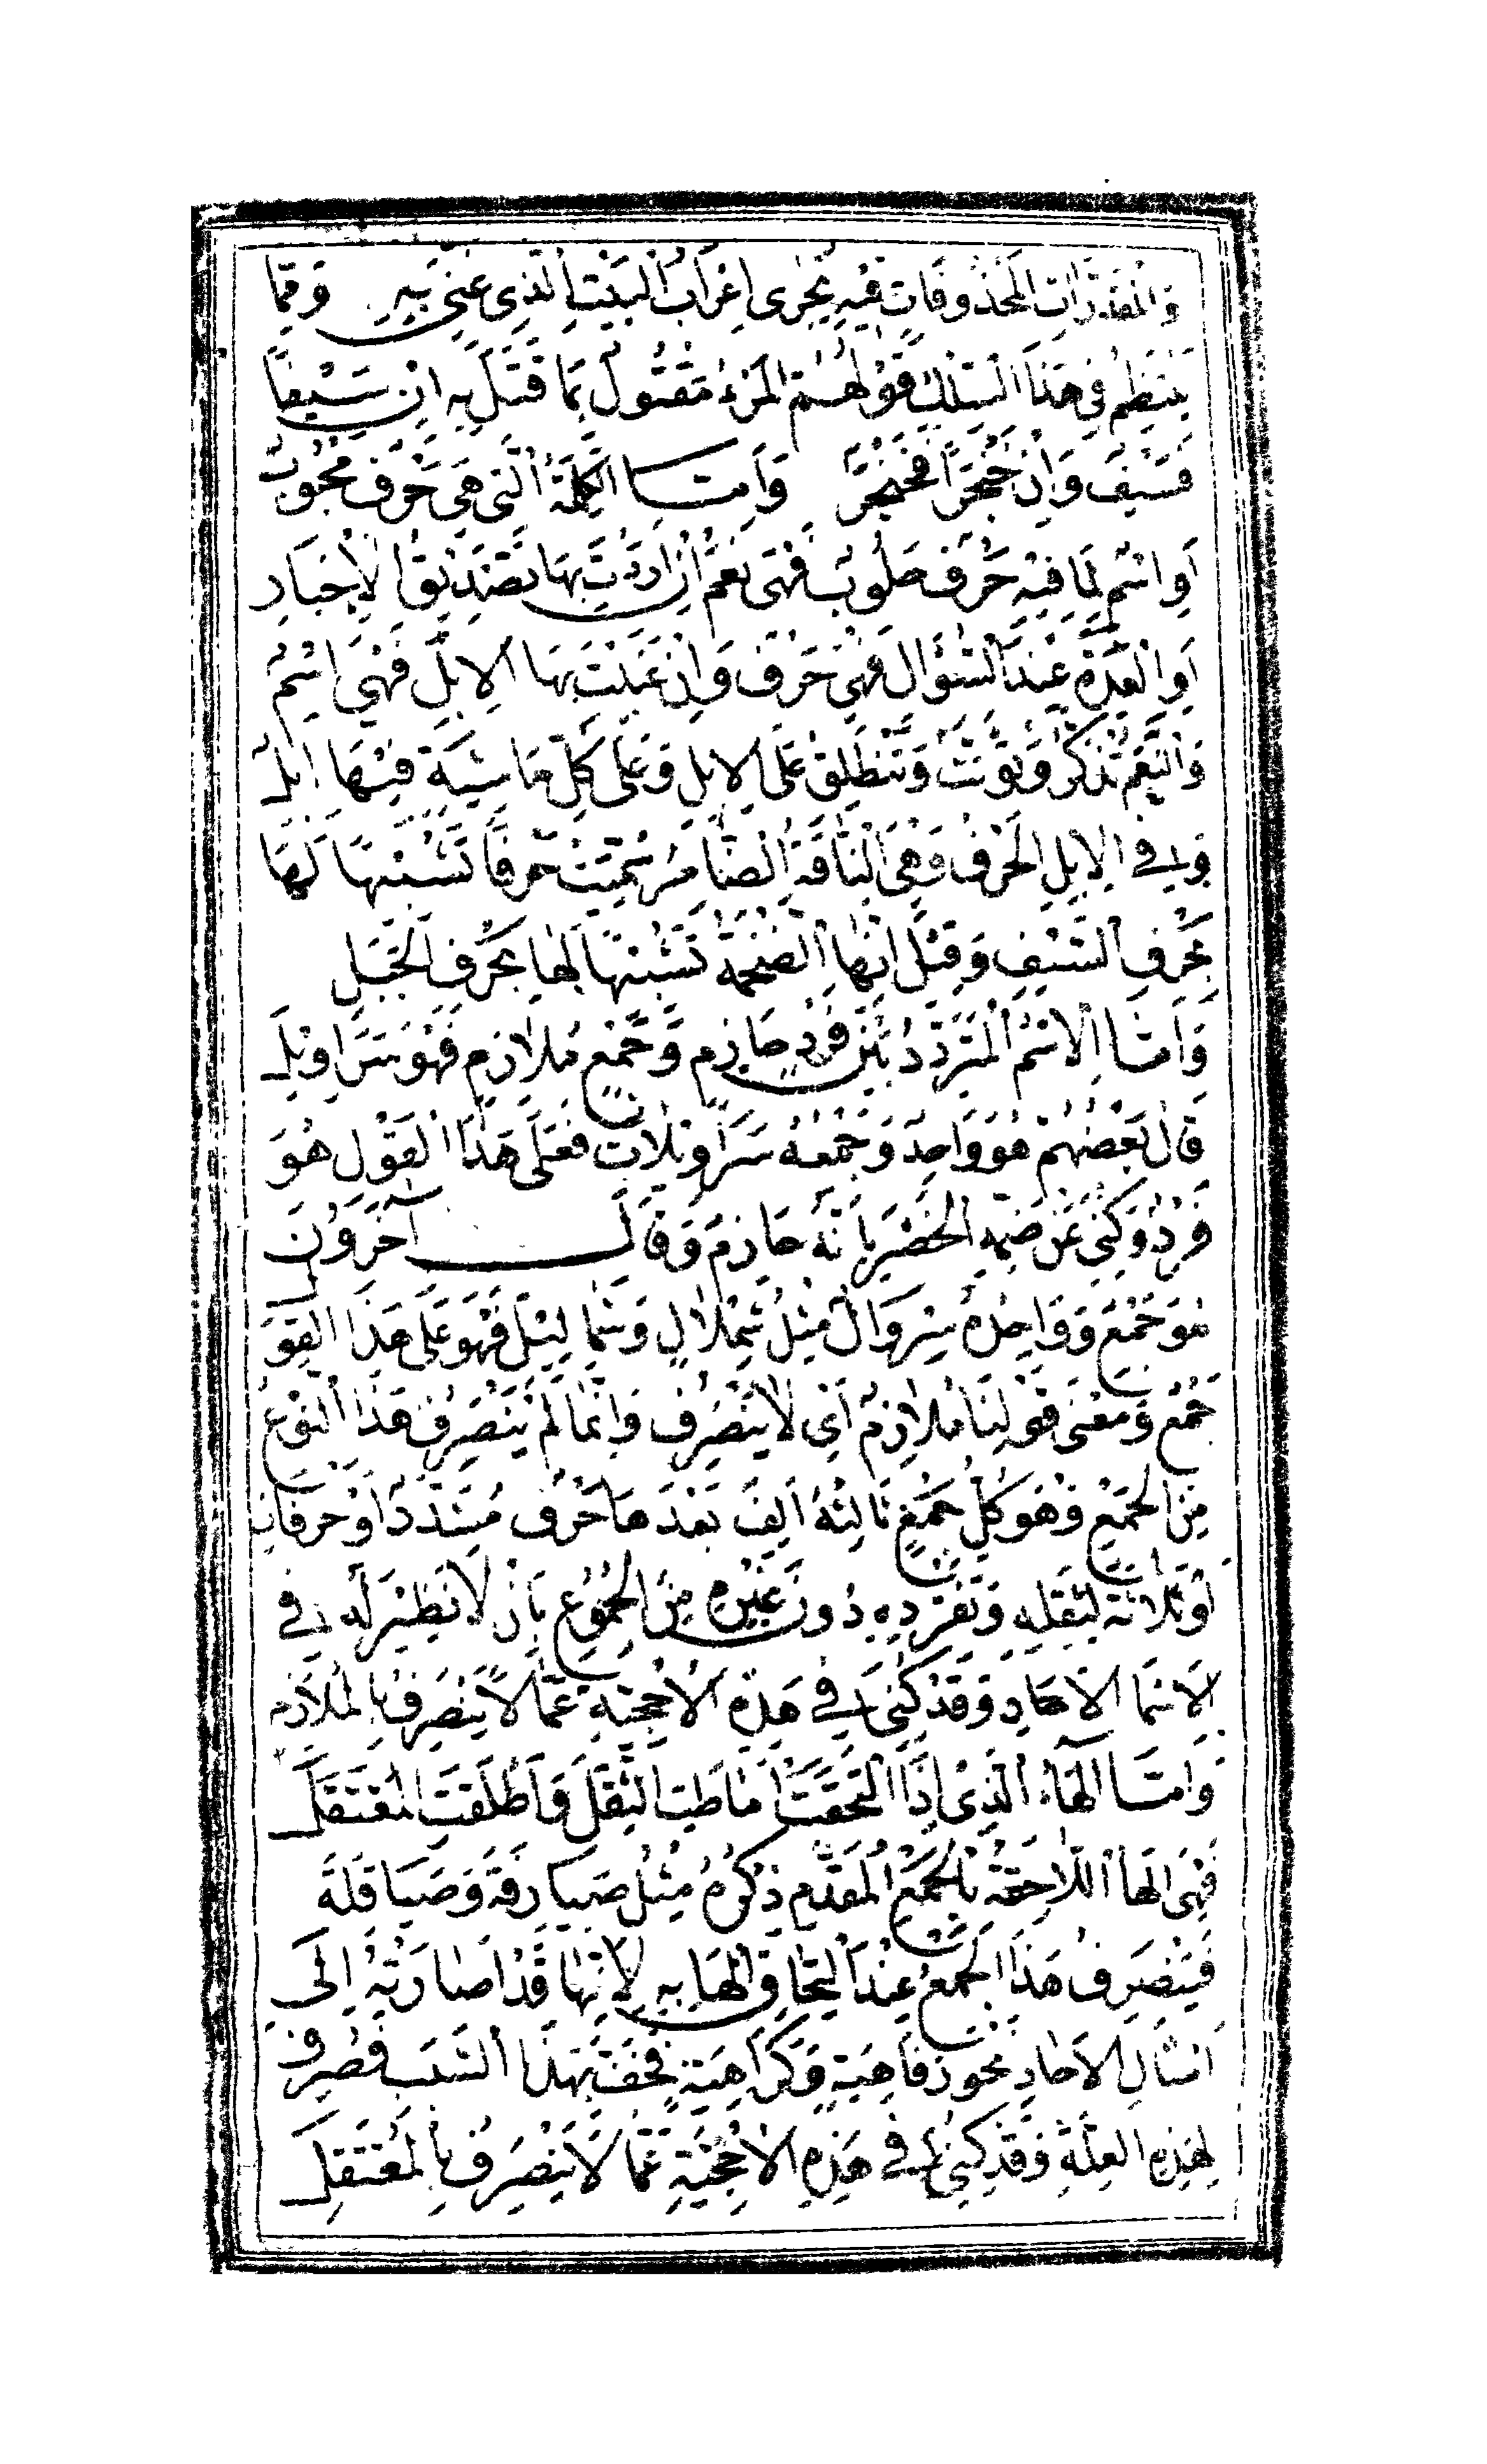 وَالمُقَدَّرَاتِ المَحْذُوفَاتِ فِيهِ يَجْرِي اِعْرَابُ البَيْتِ الَّذِي غُنِّيَ بِهِ وَمِمَّا
يَنْتَظِمُ فِي هَذَا السِّلْكِ قَوْلُهُمْ المَرْءُ مَقْتُولٌ بِمَا قَتَلَ بِهِ اِنْ سَيْفًا
فَسَيْفٌ وَاِنْ خَنْجَرًا فَخَنْجَرٌ وَاَمَّا الكَلِمَةُ الَّتِي هِيَ حَرْفٌ مَحْبُوبٌ
اَوِ اسْمٌ لِمَا فِيْهِ حَرْفٌ حَلُوبٌ فَهِيَ نَعَمْ اِنْ اَرَدْتَ بِهَا تَصْدِيْقَ الاِخْبَارِ
اَوِ العِدَةِ عِنْدَ السُّؤَالِ فَهِيَ حَرْفٌ وَاِنْ عَنَيْتَ بِهَا الاِبِلَ فَهِيَ اسْمٌ
وَالنَّعَمُ تُذَكَّرُ وَتُؤَنَّثُ وَتَنْطَلِقُ عَلَى الاِبِلِ وَعَلَى كُلِّ مَاشِيَةٍ فِيْهَا اِبِلٌ
وَفِي الاِبِلِ الحَرْفُ وَهِيَ النَّاقَةُ الضَّامِرُ سُمِّيَتْ حَرْفًا تَشْبِيْهًا لَهَا
بِحَرْفِ السَّيْفِ وَقِيْلَ اِنَّهَا الضَّخْمَةُ تَشْبِيْهًا لَهَا بِحَرْفِ الجَبَلِ
وَاَمَّا الاِسْمُ المُتَرَدِّدُ بَيْنَ فَرْدٍ حَازِمٍ وَجَمْعٍ مُلَازِمٍ فَهُوَ سَرَاوِيْلُ
قَالَ بَعْضُهُمْ هُوَ وَاحِدٌ وَجَمْعُهُ سَرَاوِيْلَاتٌ فَعَلَى هَذَا القَوْلِ هُوَ
فَرْدٌ وَكَنَى عَنْ ضَمِّهِ الخَصْرَ بِاَنَّهُ حَازِمٌ وَقَالَ آخَرُوْنَ
هُوَ جَمْعٌ وَوَاحِدُهُ سِرْوَالٌ مِثْلُ شِمْلَالٍ وَشَمَالِيْلَ فَهُوَ عَلَى هَذَا القَوْ
جَمْعٌ وَمَعْنَى قَوْلِنَا مُلَازِمٌ اَيْ لَا يَنْصَرِفُ وَاِنَّمَا لَمْ يَنْصَرِفْ هَذَا النَّوْعُ
مِنَ الجَمْعِ وَهُوَ كُلُّ جَمْعٍ ثَالِثُهُ اَلِفٌ بَعْدَهَا حَرْفٌ مُشَدَّدٌ اَوْ حَرْفَانِ
اَوْ ثَلَاثَةٌ لِثِقَلِهِ وَتَفَرُّدِهِ دُونَ غَيْرِهِ مِنَ الجُمُوْعِ بِاَنْ لَا نَظِيْرَ لَهُ فِي
الاَسْمَاءِ الآحَادِ وَقَدْ كَنَى فِي هَذِهِ الاُحْجِيَّةِ عَمَّا لَا يَنْصَرِفُ بِالمُلَازِمِ
وَاَمَّا الهَاءُ الَّذِي اِذَا الْتَحَقَتْ اَمَاطَتِ الثِّقَلَ وَاَطْلَقَتِ المُعْتَقَلَ
فَهِيَ الهَاءُ اللَّاحِقَةُ بِالجَمْعِ المُقَدَّمِ ذِكْرُهُ مِثْلُ صَيَارِفَةٍ وَصَيَاقِلَةٍ
فَيَنْصَرِفُ هَذَا الجَمْعُ عِنْدَ الْتِحَاقِ الهَاءِ بِهِ لِاَنَّهَا قَدْ اَصَارَتْهُ اِلَى
اَمْثَالِ الآحَادِ نَحْوَ رَفَاهِيَةٍ وَكَرَاهِيَةٍ فَخَفَّ بِهَذَا السَّبَبِ فَصُرِفَ
لِهَذِهِ العِلَّةِ وَقَدْ كَنَى فِي هَذِهِ الاُحْجِيَّةِ عَمَّا لَا يَنْصَرِفُ بِالمُعْتَقَلِ